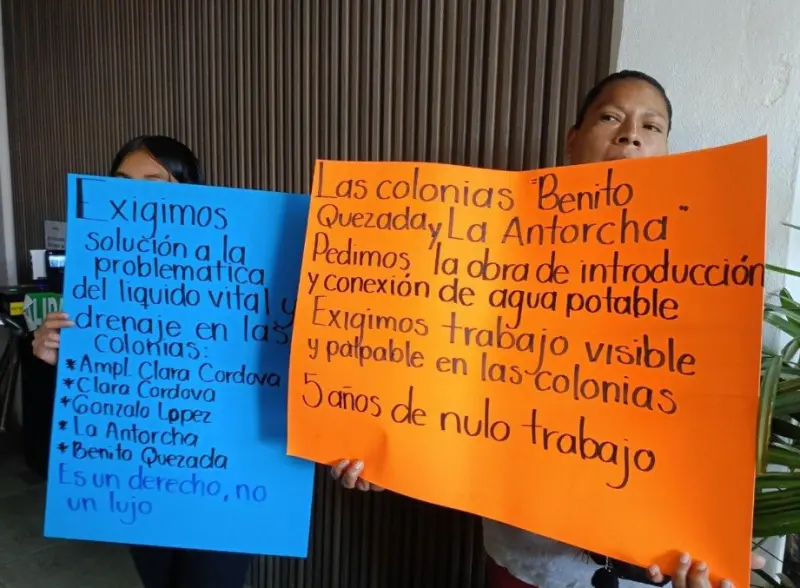 Exigimos
solución a la
problematica
del liquido vital y
drenaje en las
colonias:
*Ampl. Clara Cordova
*Clara Cordova
*Gonzalo Lopez
*La Antorcha
*Benito Quezada
Es un derecho, no
un lujo
Las colonias "Benito
Quezada y La Antorcha"
Pedimos la obra de introducción
y conexión de agua potable
Exigimos trabajo visible
y palpable en las colonias
5 años de nulo trabajo